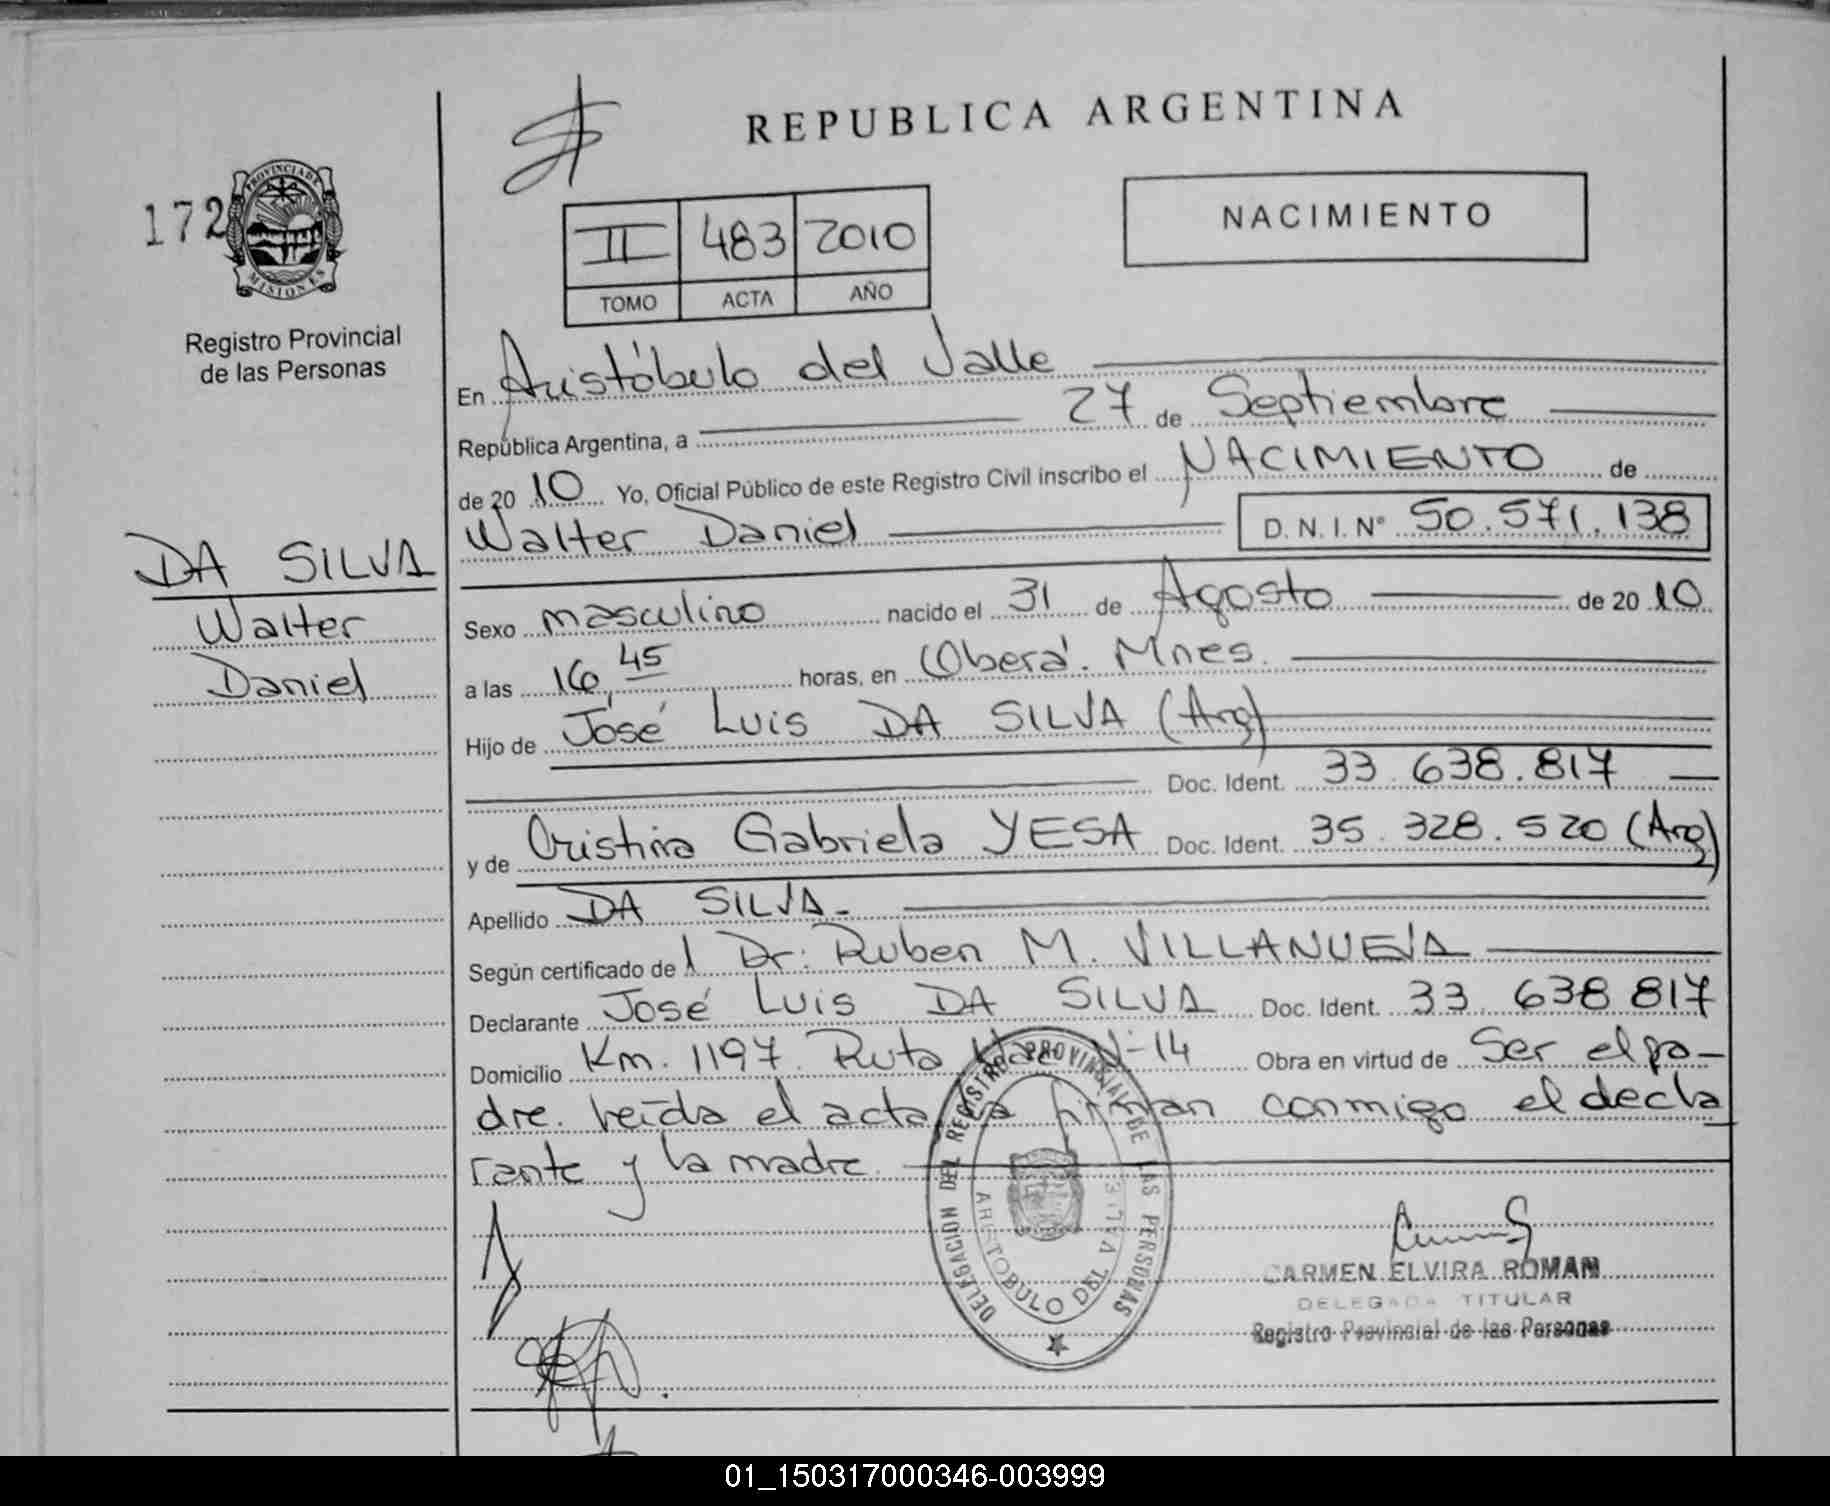 REPUBLICA ARGENTINA
172
PROVINCIA DE
MISIONES
Registro Provincial
de las Personas
II 483 2010
TOMO ACTA AÑO
NACIMIENTO
En Aristóbulo del Valle
República Argentina, a 27 de Septiembre
de 20 10 Yo, Oficial Público de este Registro Civil inscribo el NACIMIENTO de
Walter Daniel D. N. I. N° 50.571.138
DA SILVA
Walter
Daniel
Sexo masculino nacido el 31 de Agosto de 20 10
a las 16,45 horas, en Oberá. Mnes.
Hijo de José Luis DA SILVA (Arg)
Doc. Ident. 33.638.817
y de Cristina Gabriela YESA Doc. Ident. 35.328.520 (Arg)
Apellido DA SILVA.
Según certificado de l Dr: Ruben M. VILLANUEVA
Declarante José Luis DA SILVA Doc. Ident. 33.638.817
Domicilio Km. 1197. Ruta Nac N-14 Obra en virtud de Ser el pa-
dre. leída el acta la firman conmigo el decla
rante y la madre.
DELEGACION DEL REGISTRO PROVINCIAL DE LAS PERSONAS
ARISTOBULO DEL VALLE
CARMEN ELVIRA ROMAN
DELEGADA TITULAR
Registro Provincial de las Personas
01_150317000346-003999